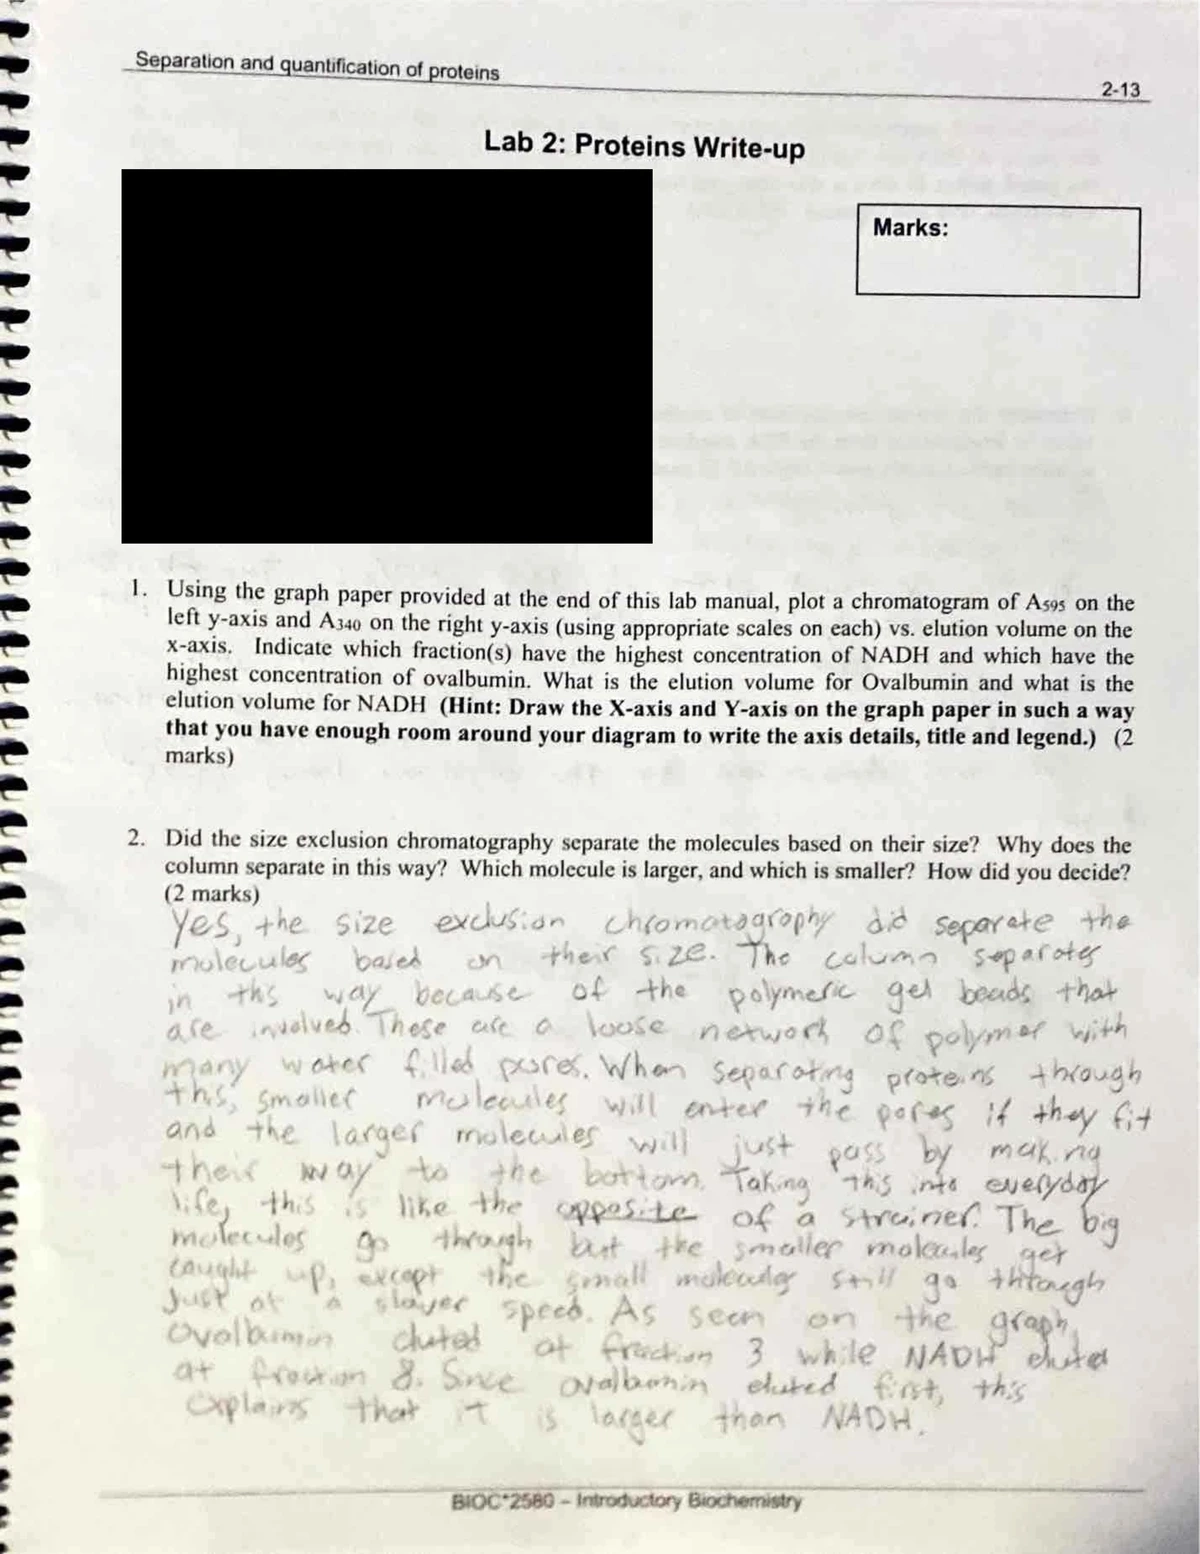 Separation and quantification of proteins
2-13
Lab 2: Proteins Write-up
Marks:
1. Using the graph paper provided at the end of this lab manual, plot a chromatogram of A595 on the
left y-axis and A340 on the right y-axis (using appropriate scales on each) vs. elution volume on the
x-axis. Indicate which fraction(s) have the highest concentration of NADH and which have the
highest concentration of ovalbumin. What is the elution volume for Ovalbumin and what is the
elution volume for NADH (Hint: Draw the X-axis and Y-axis on the graph paper in such a way
that you have enough room around your diagram to write the axis details, title and legend.) (2
marks)
2. Did the size exclusion chromatography separate the molecules based on their size? Why does the
column separate in this way? Which molecule is larger, and which is smaller? How did you decide?
(2 marks)
Yes, the size exclusion chromatography did separate the
molecules based on their size. The column separates
in this way because of the polymeric gel beads that
are involved. These are a loose network of polymer with
many water filled pores. When separating proteins through
this, smaller molecules will enter the pores if they fit
and the larger molecules will just pass by making
their way to the bottom. Taking this into everyday
life, this is like the opposite of a strainer. The big
molecules go through but the smaller molecules get
caught up, except the small molecules still go through
just at a slower speed. As seen on the graph,
Ovalbumin eluted at fraction 3 while NADH eluted
at fraction 8. Since ovalbumin eluted first, this
explains that it is larger than NADH.
BIOC*2580 – Introductory Biochemistry